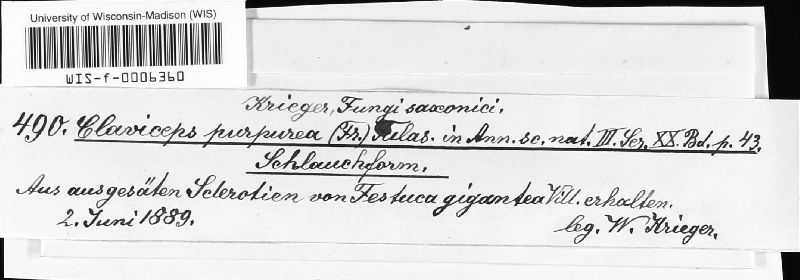 University of Wisconsin-Madison (WIS)
WIS-f-0006360
Krieger, Fungi saxonici.
490. Claviceps purpurea (Fr.) Tulas. in Ann. sc. nat. III. Ser. XX. Bd. p. 43.
Schlauchform.
Aus ausgesäten Sclerotien von Festuca gigantea Vill. erhalten.
2. Juni 1889.
leg. W. Krieger.